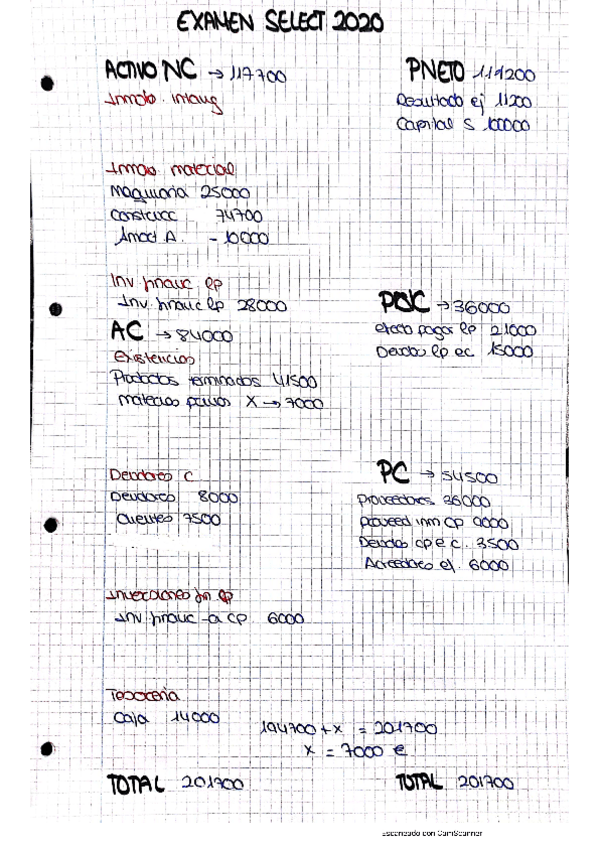 EXAMEN SELECT 2020
ACTIVO NC → 117700
Inmob. intang
Inmob material
Maquinaria 25000
Construcc 74700
Amort A. - 10000
Inv. financ lp
Inv. financ lp 28000
AC → 84000
Existencias
Productos terminados 41500
materias primas X → 7000
Deudores C
Deudores 8000
Clientes 7500
Inversiones fin cp
Inv financ a cp 6000
Tesoreria
Caja 14000
TOTAL 201700
PNETO 111200
Resultado ej 11200
Capital S 100000
PNC → 36000
efecto pagar lp 21000
Deudas lp e.c. 15000
PC → 54500
Proveedores 36000
proveed inm cp 9000
Deudas cp e.c. 3500
Acreedores ef. 6000
194700 + x = 201700
x = 7000 €
TOTAL 201700
Escaneado con CamScanner